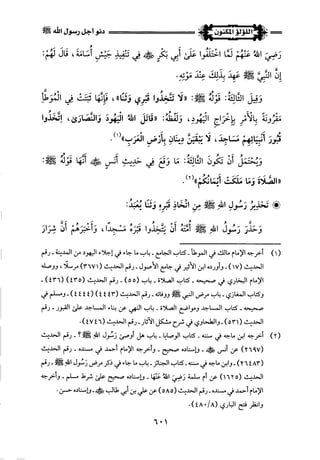 اللؤلؤ المكنون
دنو أجل رسول الله ﷺ
رَضِيَ اللهُ عَنْهُمْ لَمَّا اخْتَلَفُوا عَلَىٰ أَبِي بَكْرٍ ﷺ فِي تَنْفِيذِ جَيْشِ أُسَامَةَ، قَالَ لَهُمْ:
إِنَّ النَّبِيَّ ﷺ عَهِدَ بِذَلِكَ عِنْدَ مَوْتِهِ.
وَقِيلَ الثَّالِثَةُ: قَوْلُهُ ﷺ: «لَا تَتَّخِذُوا قَبْرِي وَثَنًا»، فَإِنَّهَا ثَبَتَتْ فِي الْمُوَطَّأِ
مَقْرُونَةً بِالْأَمْرِ بِإِخْرَاجِ الْيَهُودِ، وَلَفْظُهُ: «قَاتَلَ اللهُ الْيَهُودَ وَالنَّصَارَىٰ، اتَّخَذُوا
قُبُورَ أَنْبِيَائِهِمْ مَسَاجِدَ، لَا يَبْقَيَنَّ دِينَانِ بِأَرْضِ الْعَرَبِ»(١).
وَيُحْتَمَلُ أَنْ تَكُونَ الثَّالِثَةُ: مَا وَقَعَ فِي حَدِيثِ أَنَسٍ ﷺ أَنَّهَا قَوْلُهُ ﷺ:
«الصَّلَاةَ وَمَا مَلَكَتْ أَيْمَانُكُمْ»(٢).
تَحْذِيرُ رَسُولِ اللهِ ﷺ مِنِ اتِّخَاذِ قَبْرِهِ وَثَنًا يُعْبَدُ:
وَحَذَّرَ رَسُولُ اللهِ ﷺ أُمَّتَهُ أَنْ يَتَّخِذُوا قَبْرَهُ مَسْجِدًا، وَأَخْبَرَهُمْ أَنَّ شِرَارَ
(١) أخرجه الإمام مالك في الموطأ - كتاب الجامع - باب ما جاء في إجلاء اليهود من المدينة - رقم
الحديث (١٧) - وأورده ابن الأثير في جامع الأصول - رقم الحديث (٣٦٧١) مرسلًا، ووصله
الإمام البخاري في صحيحه - كتاب الصلاة - باب (٥٥) - رقم الحديث (٤٣٥) (٤٣٦) -
وكتاب المغازي - باب مرض النبي ﷺ ووفاته - رقم الحديث (٤٤٤٣) (٤٤٤٤) - ومسلم في
صحيحه - كتاب المساجد ومواضع الصلاة - باب النهي عن بناء المساجد على القبور - رقم
الحديث (٥٣١) - والطحاوي في شرح مشكل الآثار - رقم الحديث (٤٧٤٦).
(٢) أخرجه ابن ماجه في سننه - كتاب الوصايا - باب هل أوصىٰ رسول الله ﷺ؟ - رقم الحديث
(٢٦٩٧) عن أنس ﷺ - وإسناده صحيح - وأخرجه الإمام أحمد في مسنده - رقم الحديث
(٢٦٤٨٣) - وابن ماجه في سننه - كتاب الجنائز - باب ما جاء في ذكر مرض رسول الله ﷺ - رقم
الحديث (١٦٢٥) عن أم سلمة رَضِيَ اللهُ عَنْهَا - وإسناده صحيح علىٰ شرط مسلم - وأخرجه
الإمام أحمد في مسنده - رقم الحديث (٥٨٥) عن علي بن أبي طالب ﷺ - وإسناده حسن.
وانظر فتح الباري (٤٨٠/٨).
٦٠١